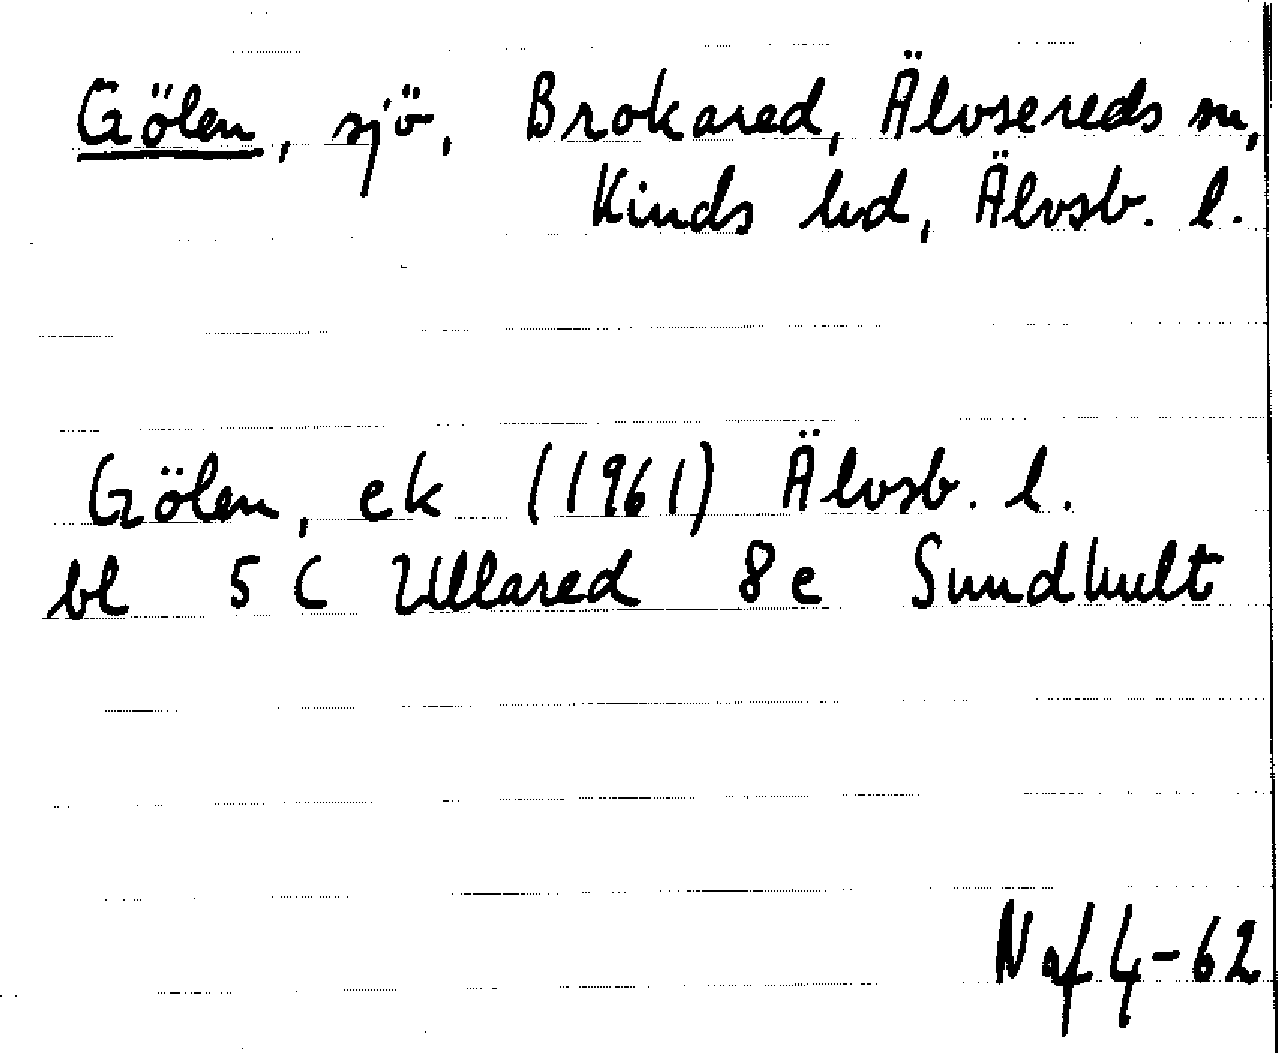 Gölen, sjö, Brokared, Älvsereds sn,
Kinds hd, Älvsb. l.
Gölen, ek (1961) Älvsb. l.
bl 5 C Ullared 8 e Sundhult
Naf 4-62